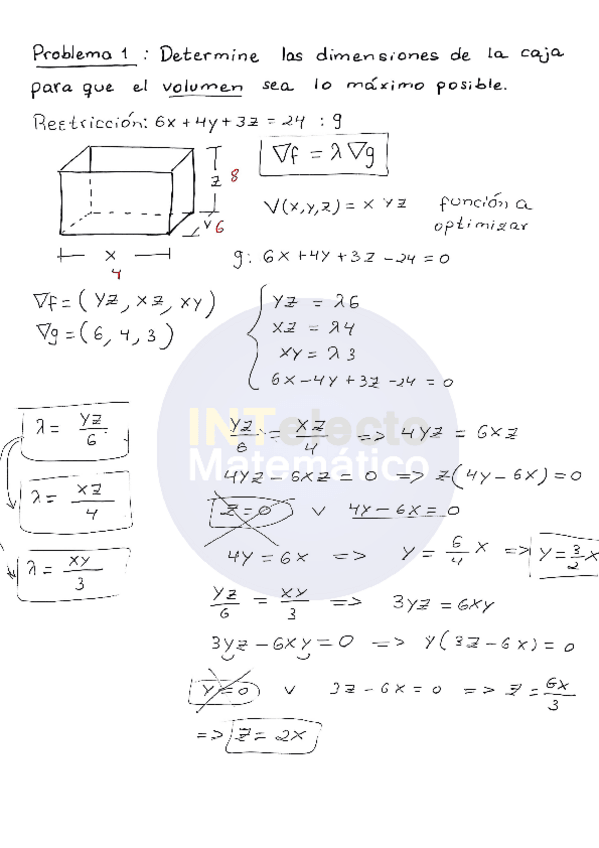 Problema 1 : Determine las dimensiones de la caja
para que el volumen sea lo máximo posible.
Restricción: 6x + 4y + 3z = 24 : g
∇f = λ∇g
z 8
V(x,y,z) = x y z función a
optimizar
y 6
x
4
g: 6x + 4y + 3z - 24 = 0
∇f = (yz, xz, xy)
∇g = (6, 4, 3)
yz = λ6
xz = λ4
xy = λ3
6x - 4y + 3z - 24 = 0
INTelecto
Matemático
λ = yz/6
λ = xz/4
λ = xy/3
yz/6 = xz/4 => 4yz = 6xz
4yz - 6xz = 0 => z(4y - 6x) = 0
z = 0 v 4y - 6x = 0
4y = 6x => y = 6/4 x => y = 3/2 x
yz/6 = xy/3 => 3yz = 6xy
3yz - 6xy = 0 => y(3z - 6x) = 0
y = 0 v 3z - 6x = 0 => z = 6x/3
=> z = 2x